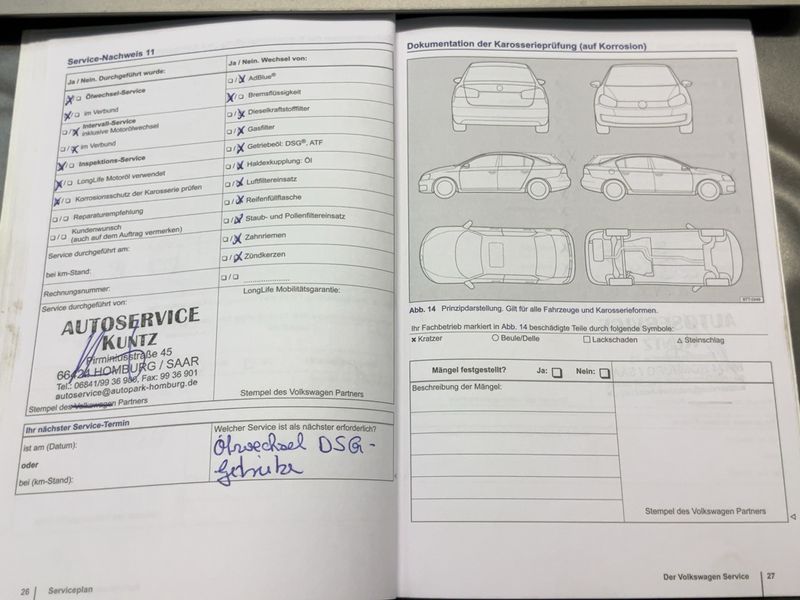 Service-Nachweis 11
Ja / Nein. Durchgeführt wurde:
Ölwechsel-Service
im Verbund
Intervall-Service
inklusive Motorölwechsel
im Verbund
Inspektions-Service
LongLife Motoröl verwendet
Korrosionsschutz der Karosserie prüfen
Reparaturempfehlung
Kundenwunsch
(auch auf dem Auftrag vermerken)
Service durchgeführt am:
bei km-Stand:
Rechnungsnummer:
Service durchgeführt von:
AUTOSERVICE
KUNTZ
Pirminiusstraße 45
66424 HOMBURG / SAAR
Tel.: 06841/99 36 900, Fax: 99 36 901
autoservice@autopark-homburg.de
Stempel des Volkswagen Partners
Ja / Nein. Wechsel von:
AdBlue®
Bremsflüssigkeit
Dieselkraftstofffilter
Gasfilter
Getriebeöl: DSG®, ATF
Haldexkupplung: Öl
Luftfiltereinsatz
Reifenfüllflasche
Staub- und Pollenfiltereinsatz
Zahnriemen
Zündkerzen
LongLife Mobilitätsgarantie:
Stempel des Volkswagen Partners
Ihr nächster Service-Termin
ist am (Datum):
oder
bei (km-Stand):
Welcher Service ist als nächster erforderlich?
Ölwechsel DSG-
Getriebe
26 | Serviceplan
Dokumentation der Karosserieprüfung (auf Korrosion)
Abb. 14 Prinzipdarstellung. Gilt für alle Fahrzeuge und Karosserieformen.
Ihr Fachbetrieb markiert in Abb. 14 beschädigte Teile durch folgende Symbole:
x Kratzer ○ Beule/Delle □ Lackschaden △ Steinschlag
Mängel festgestellt? Ja: □ Nein: □
Beschreibung der Mängel:
Stempel des Volkswagen Partners
Der Volkswagen Service | 27